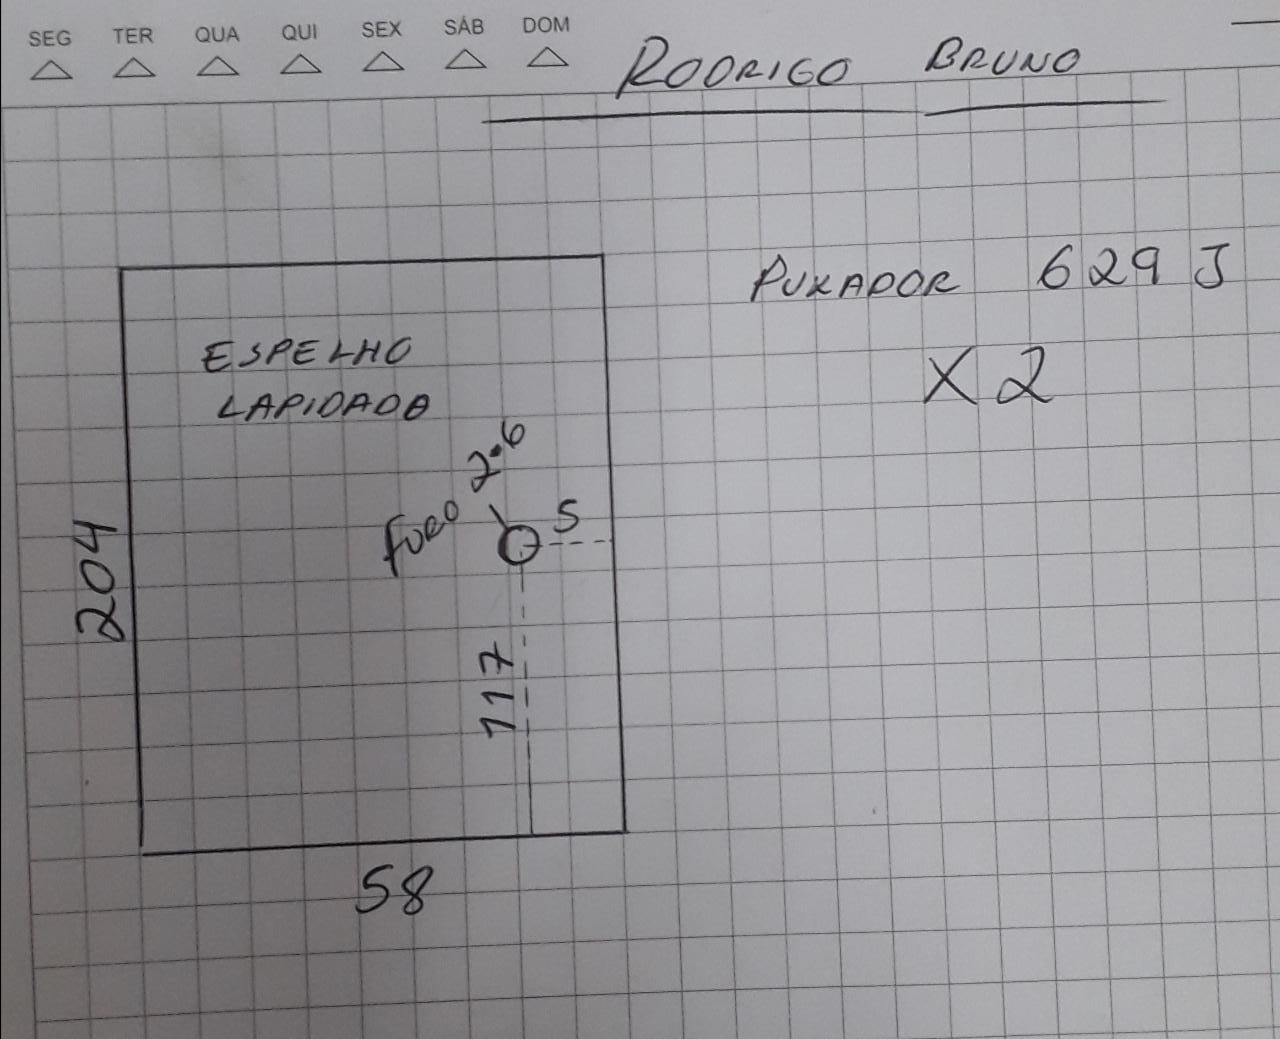 SEG TER QUA QUI SEX SÁB DOM
RODRIGO BRUNO
PUXADOR 629 J
X 2
ESPELHO
LAPIDADO
FURO 2.6
5
204
117
58